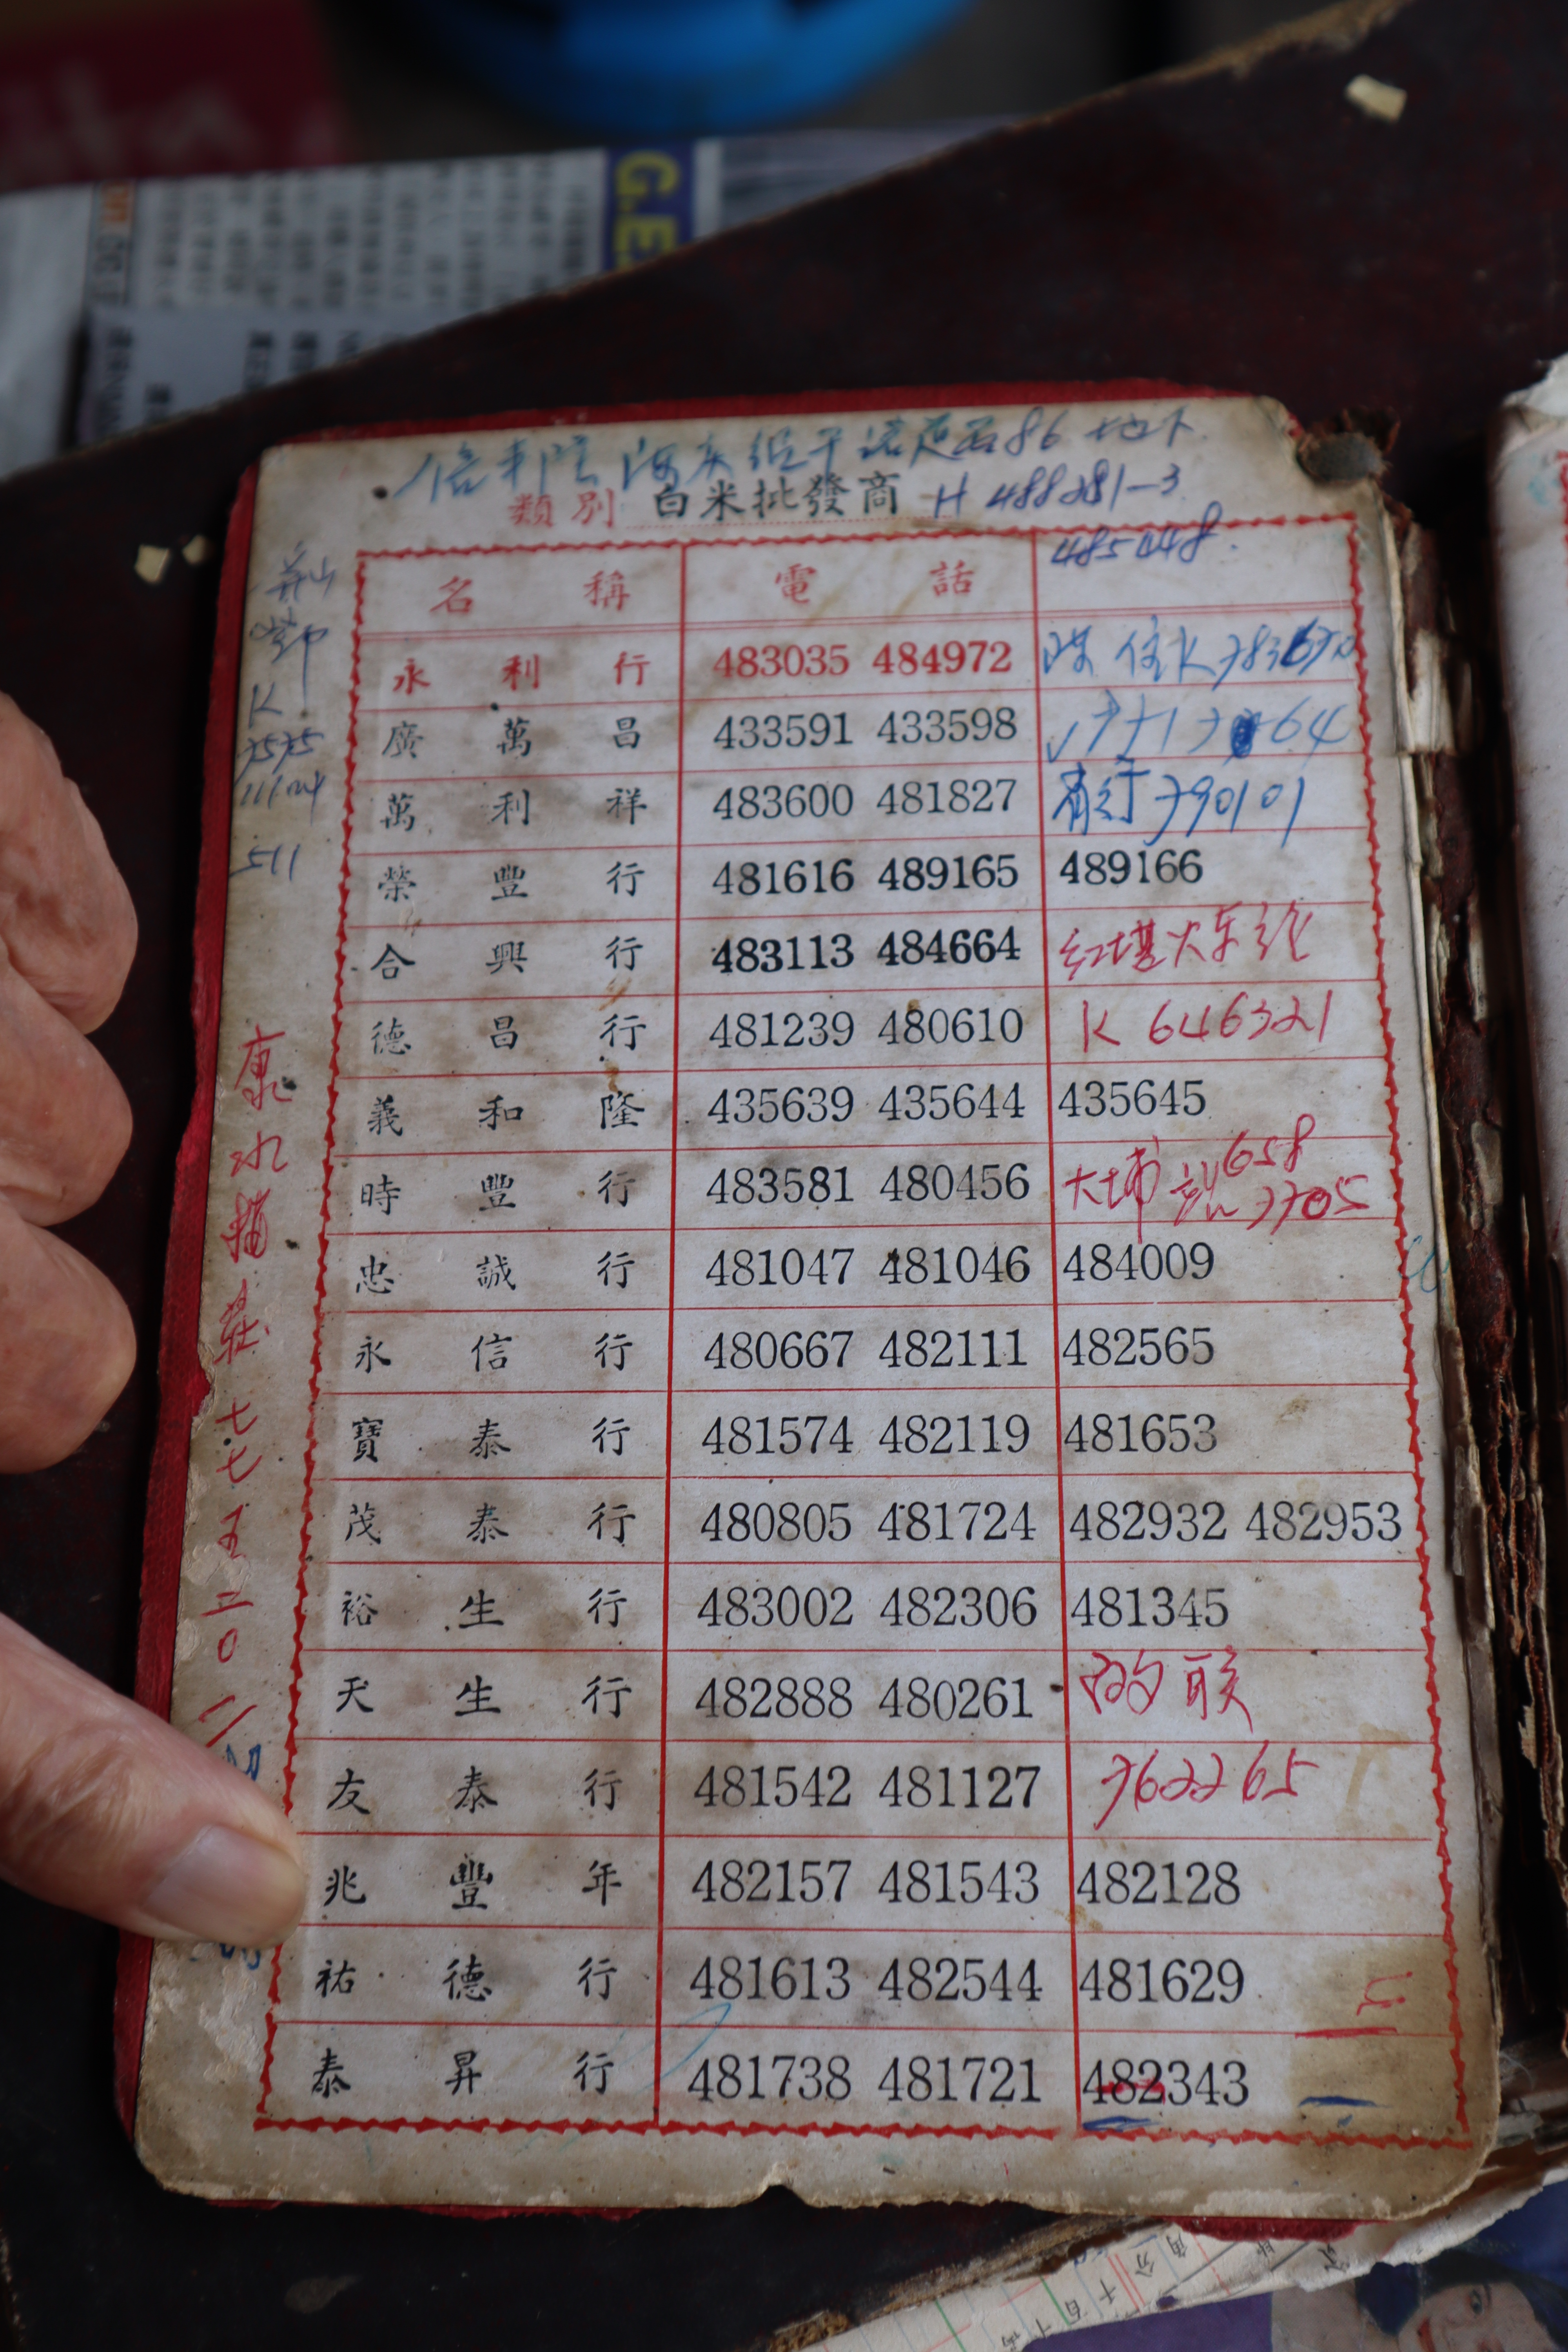 G.E
486 地下
類別 白米批發商 H 488281-3
485448.
名稱 電話
永利行 483035 484972
廣萬昌 433591 433598
萬利祥 483600 481827 790101
榮豐行 481616 489165 489166
合興行 483113 484664 红墈火车
德昌行 481239 480610 K 646321
義和隆 435639 435644 435645
時豐行 483581 480456 大埔 658 7705
忠誠行 481047 481046 484009
永信行 480667 482111 482565
寶泰行 481574 482119 481653
茂泰行 480805 481724 482932 482953
裕生行 483002 482306 481345
天生行 482888 480261
友泰行 481542 481127 762265
兆豐年 482157 481543 482128
祐德行 481613 482544 481629
泰昇行 481738 481721 482343
K
7575
511
康
水
七
七
五
二
0